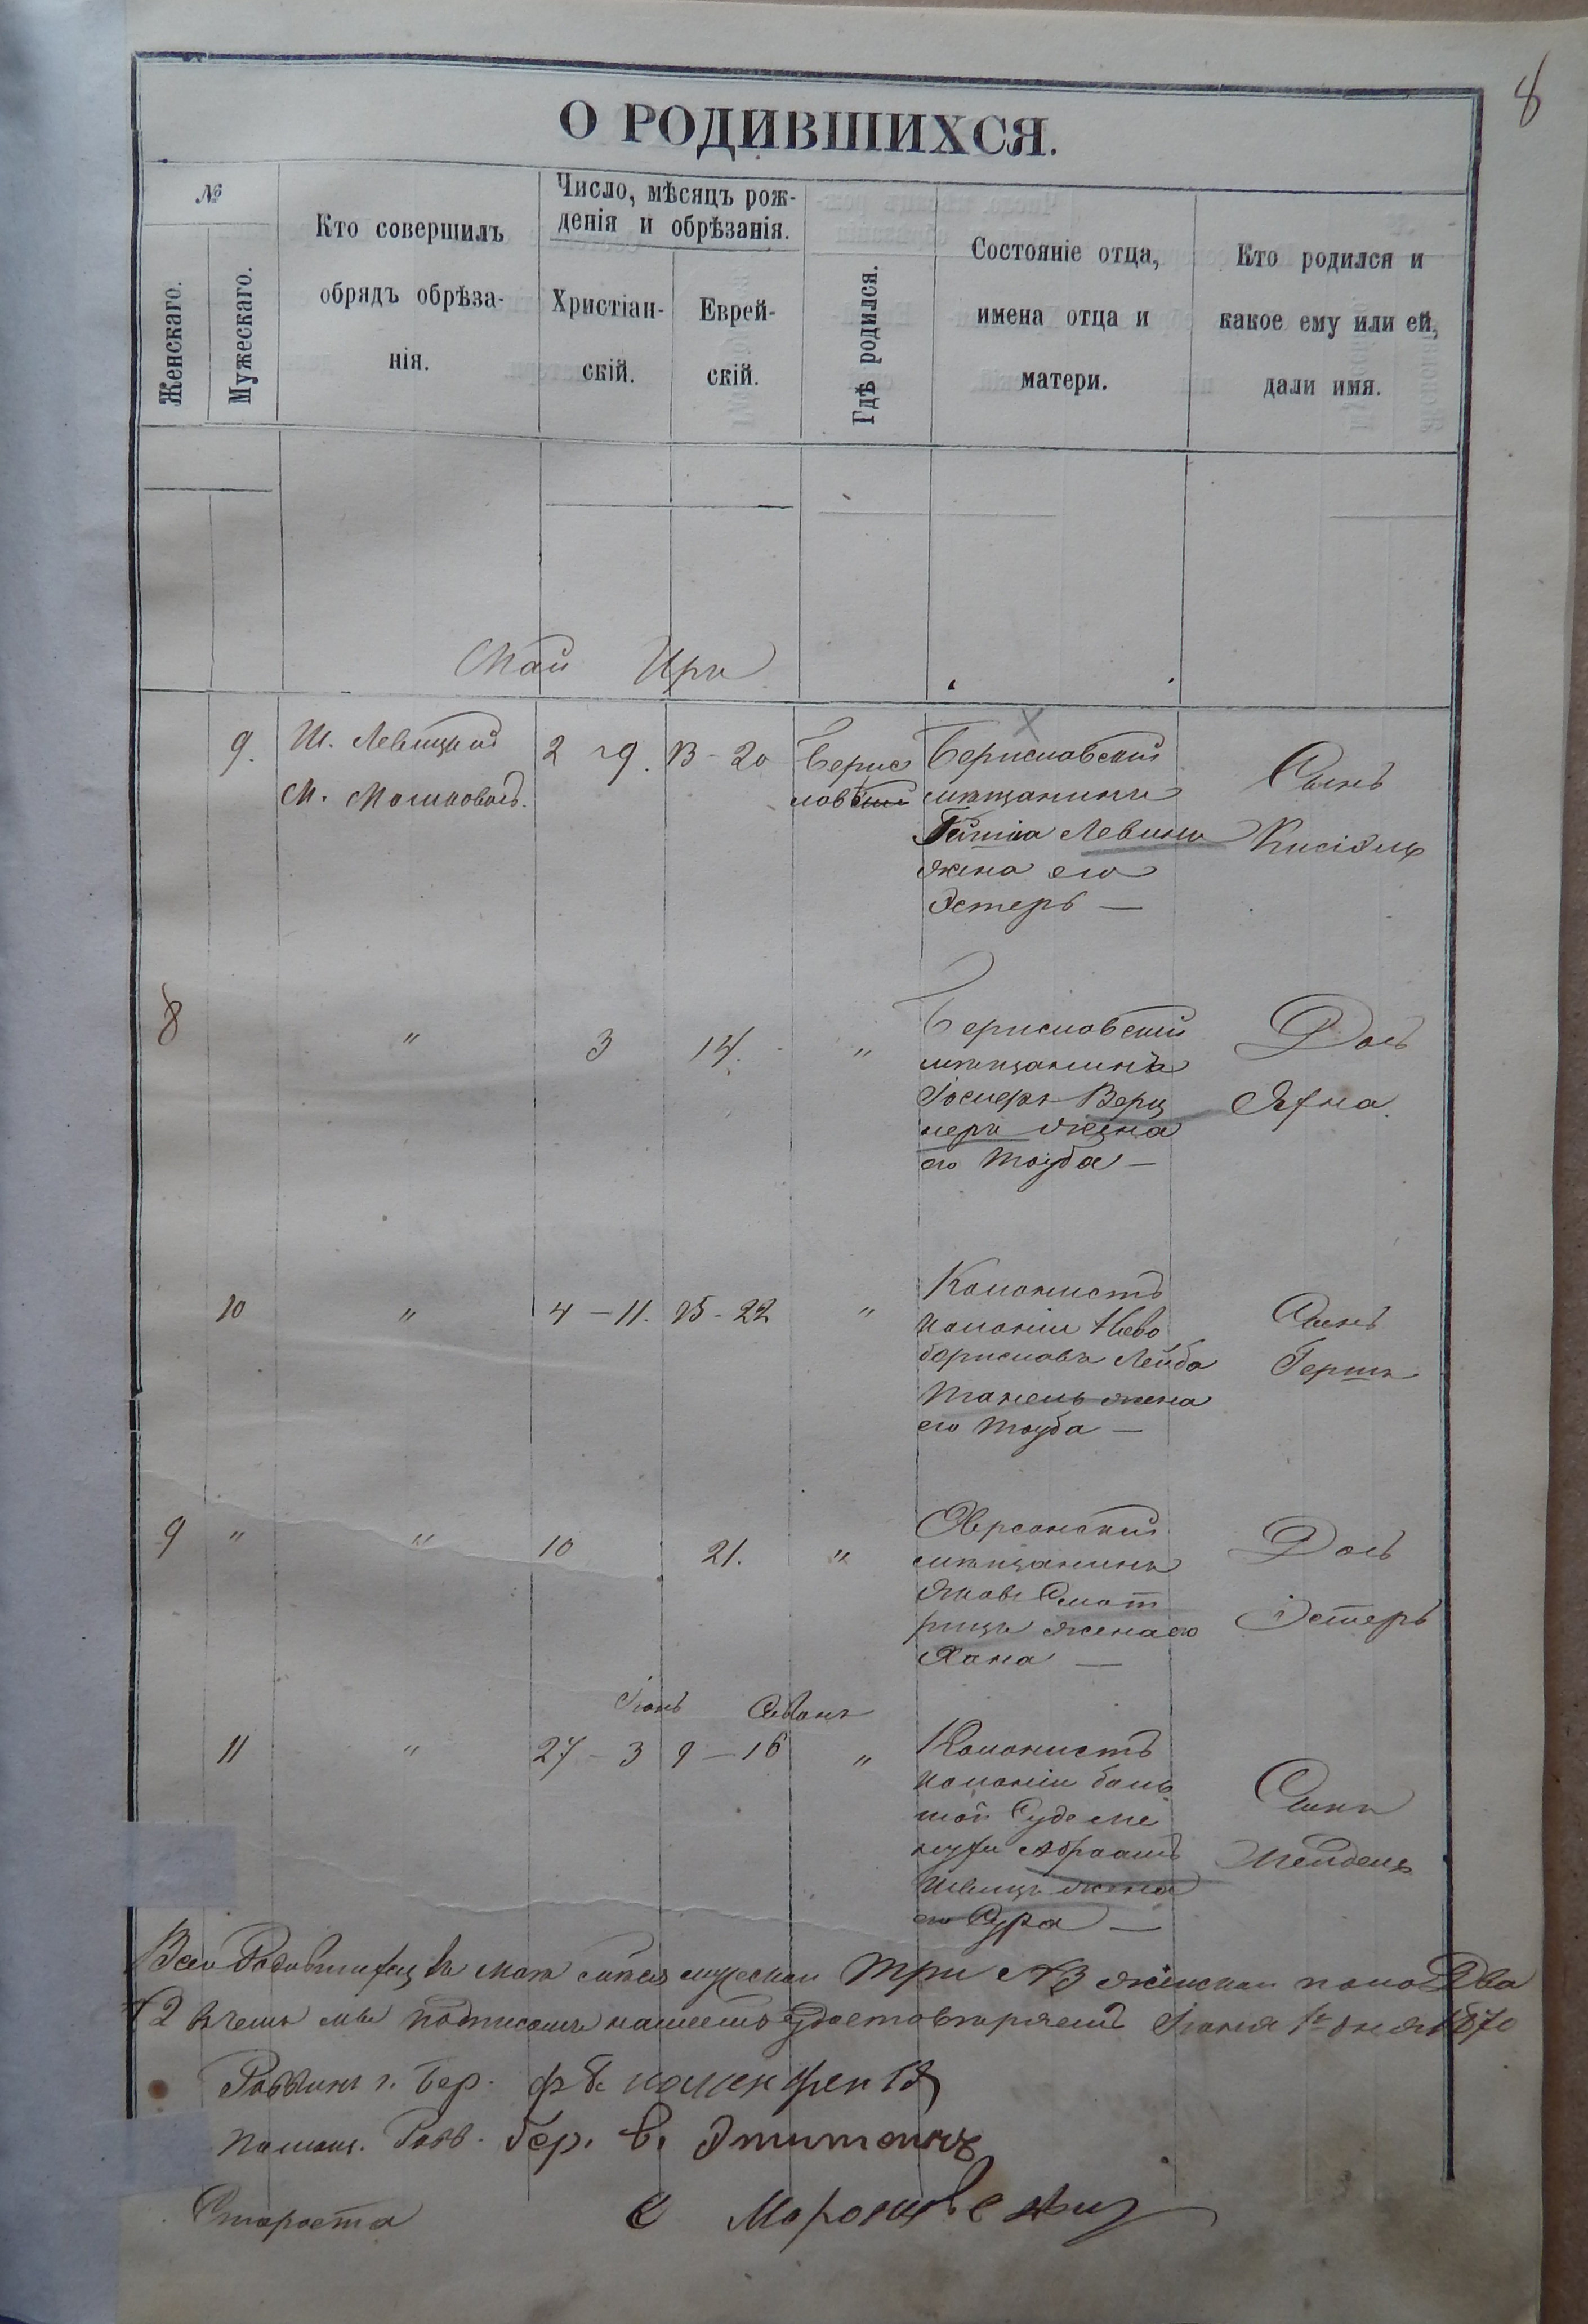 8
О РОДИВШИХСЯ.
№
Женскаго.
Мужескаго.
Кто совершилъ
обрядъ обрѣза-
нія.
Число, мѣсяцъ рож-
денія и обрѣзанія.
Христіан-
скій.
Еврей-
скій.
Гдѣ родился.
Состояніе отца,
имена отца и
матери.
Кто родился и
какое ему или ей,
дали имя.
Май Иръ
9.
Ш. Левицкій
М. Мошковичъ.
2 - 9.
13 - 20
Берис
лавѣ
Бериславскій
мѣщанинъ
Левинъ
жена его
Эстеръ —
Сынъ
8
"
3
14.
"
Бериславскій
мѣщанинъ
жена
его Тауба —
Дочь
10
"
4 - 11.
15 - 22
"
Колонистъ
колоніи Ново
бериславъ Лейба
жена
его Тауба —
Сынъ
Гершъ
9 "
"
10
21.
"
Херсонскій
мѣщанинъ
Яковъ Смот
рицъ жена его
Хана —
Дочь
Эстеръ
Іюнь Сиванъ
11
"
27 - 3
9 - 16
"
Колонистъ
колоніи боль
шой Сейдеме
нухи Абрамъ
Швецъ жена
его Сура —
Сынъ
Мендель
Всего Родившихся въ маѣ мужескаго Три №3 женскаго пола Два
№2 въ чемъ мы подписомъ нашимъ удостовѣряемъ Іюня 1го дня 1870
Раввинъ г. Бер.
Помощ. Равв. Бер. В.
Староста С